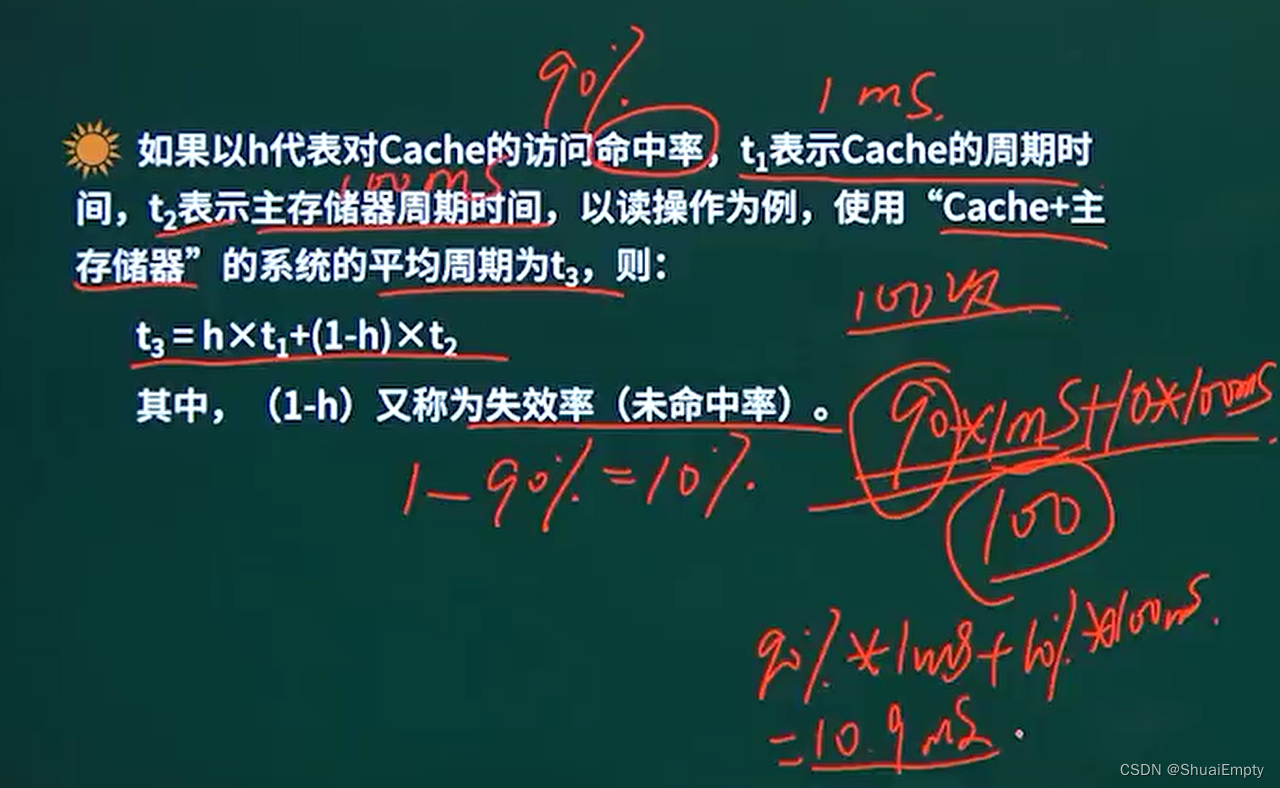 90%
1ms.
如果以h代表对Cache的访问命中率，t₁表示Cache的周期时
100ms
间，t₂表示主存储器周期时间，以读操作为例，使用“Cache+主
存储器”的系统的平均周期为t₃，则：
100次
t₃=h×t₁+(1-h)×t₂
其中，（1-h）又称为失效率（未命中率）。
90*1mS+10*100ms
100
1-90%=10%.
90%*1ms+10%*100ms.
=10.9ms.
CSDN @ShuaiEmpty